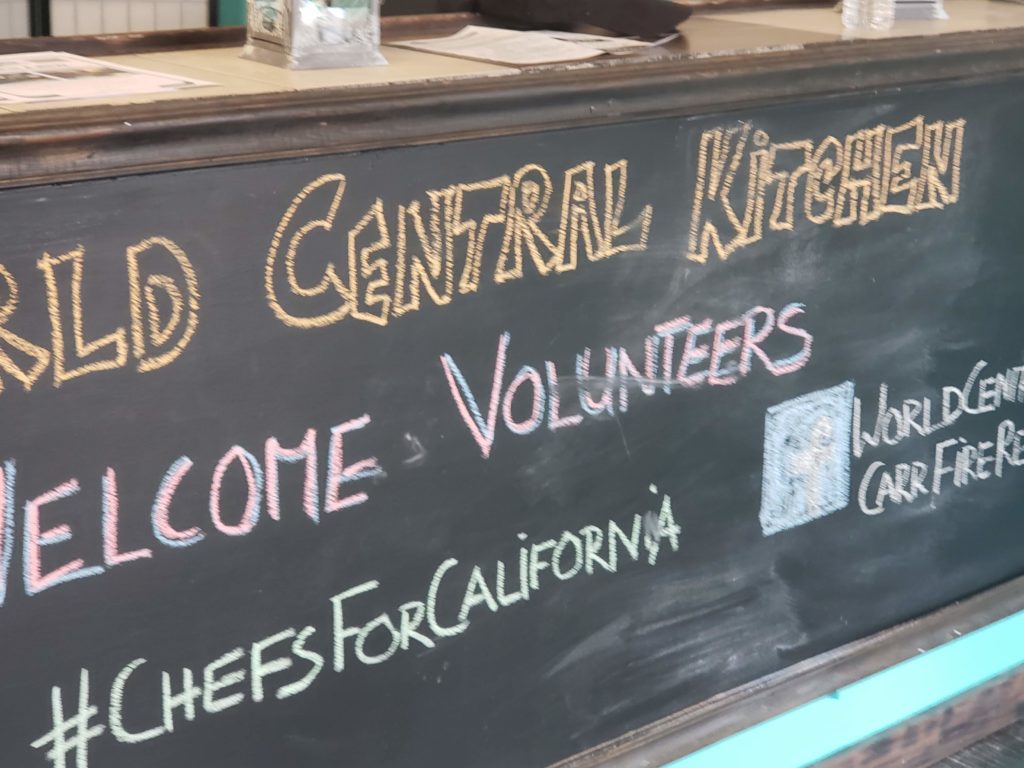 RLD CENTRAL KITCHEN
WELCOME VOLUNTEERS
#CHEFSFORCALIFORNIA
WORLDCENT
CARRFIRERE